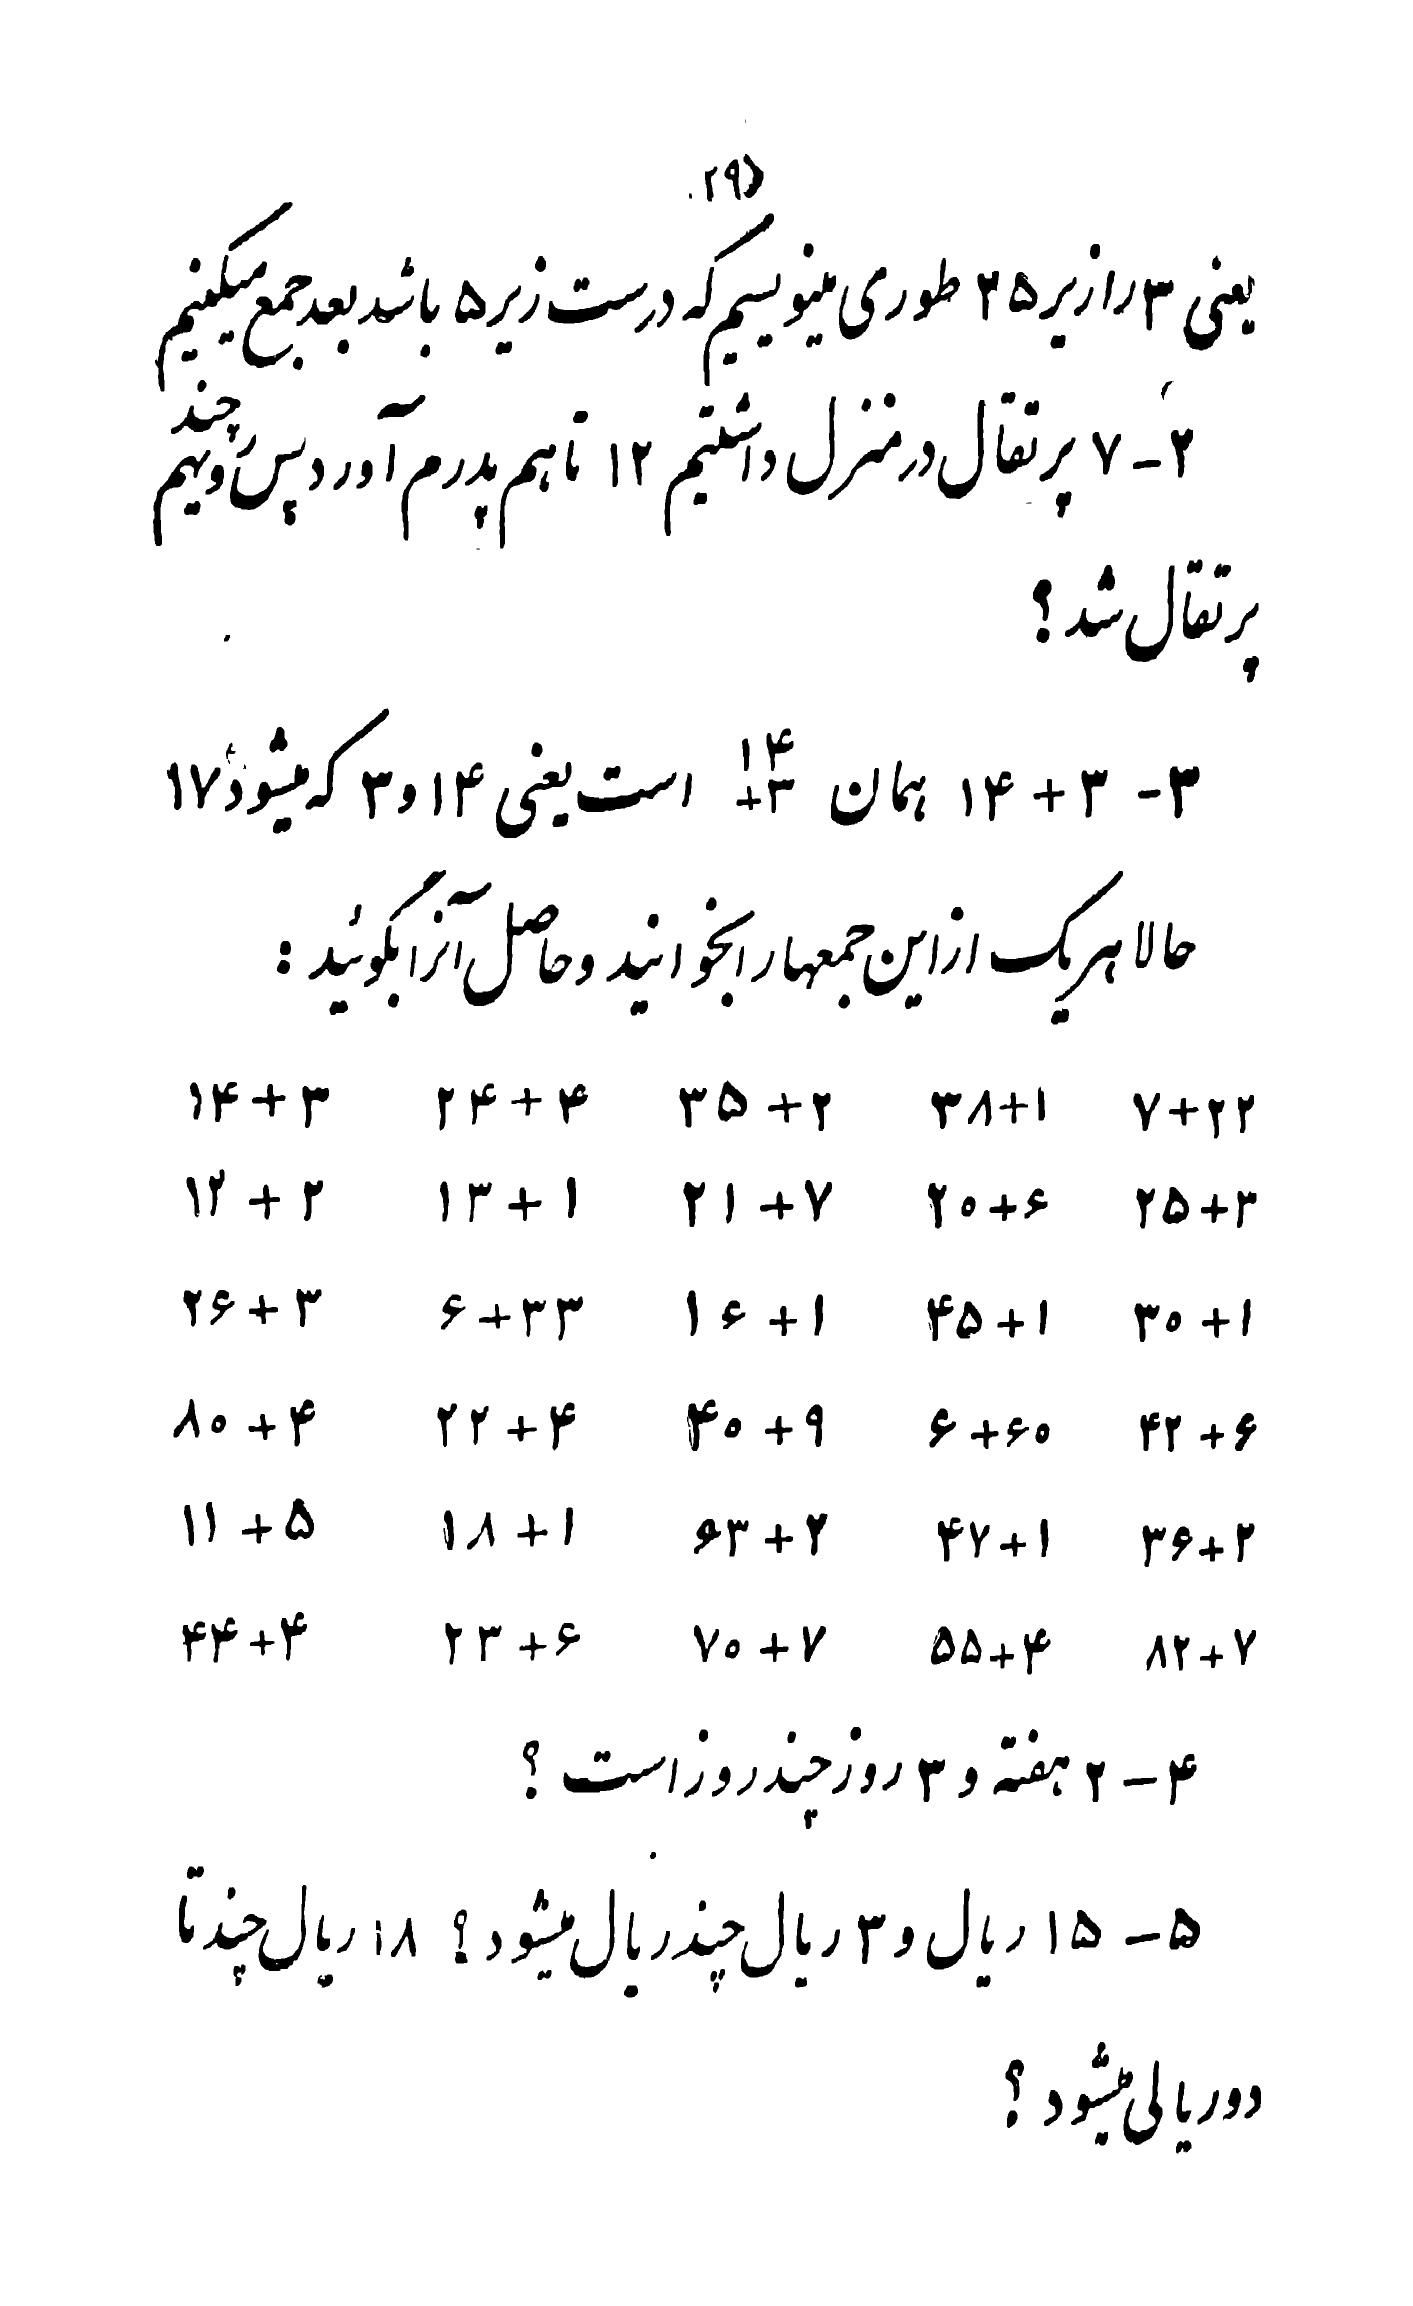 (۲۹
یعنی ۳ را زیر ۲۵ طوری مینویسیم که درست زیر ۵ باشد بعد جمع میکنیم
۲ــ ۷ پرتقال در منزل داشتیم ۱۲ تا هم پدرم آورد پس رویهم چند
پرتقال شد ؟
۳ــ ۱۴ + ۳ همان ۱۴ +۳ است یعنی ۱۴ و ۳ که میشود ۱۷
حالا هر یک از این جمعها را بخوانید و حاصل آنرا بگوئید :
۱۴+۳ ۲۴+۴ ۳۵+۲ ۳۸+۱ ۷+۲۲
۱۲+۲ ۱۳+۱ ۲۱+۷ ۲۰+۶ ۲۵+۳
۲۶+۳ ۶+۳۳ ۱۶+۱ ۴۵+۱ ۳۰+۱
۸۰+۴ ۲۲+۴ ۴۰+۹ ۶+۶۰ ۴۲+۶
۱۱+۵ ۱۸+۱ ۶۳+۲ ۴۷+۱ ۳۶+۲
۴۴+۴ ۲۳+۶ ۷۰+۷ ۵۵+۴ ۸۲+۷
۴ــ ۲ هفته و ۳ روز چند روز است ؟
۵ــ ۱۵ ریال و ۳ ریال چند ریال میشود ؟ ۱۸ ریال چند تا
دو ریالی میشود ؟